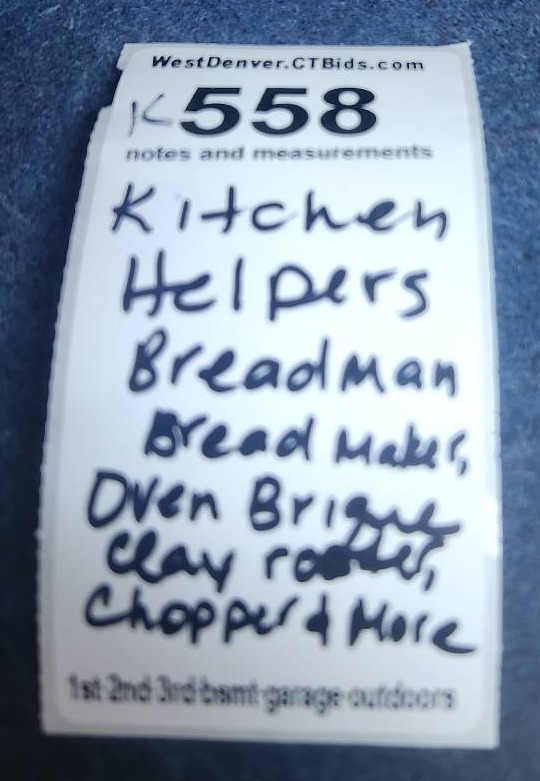 WestDenver.CTBids.com
K558
notes and measurements
Kitchen
Helpers
Breadman
Bread Maker,
Oven Brique
Clay roaster,
Chopper & More
1st 2nd 3rd bsmt garage outdoors